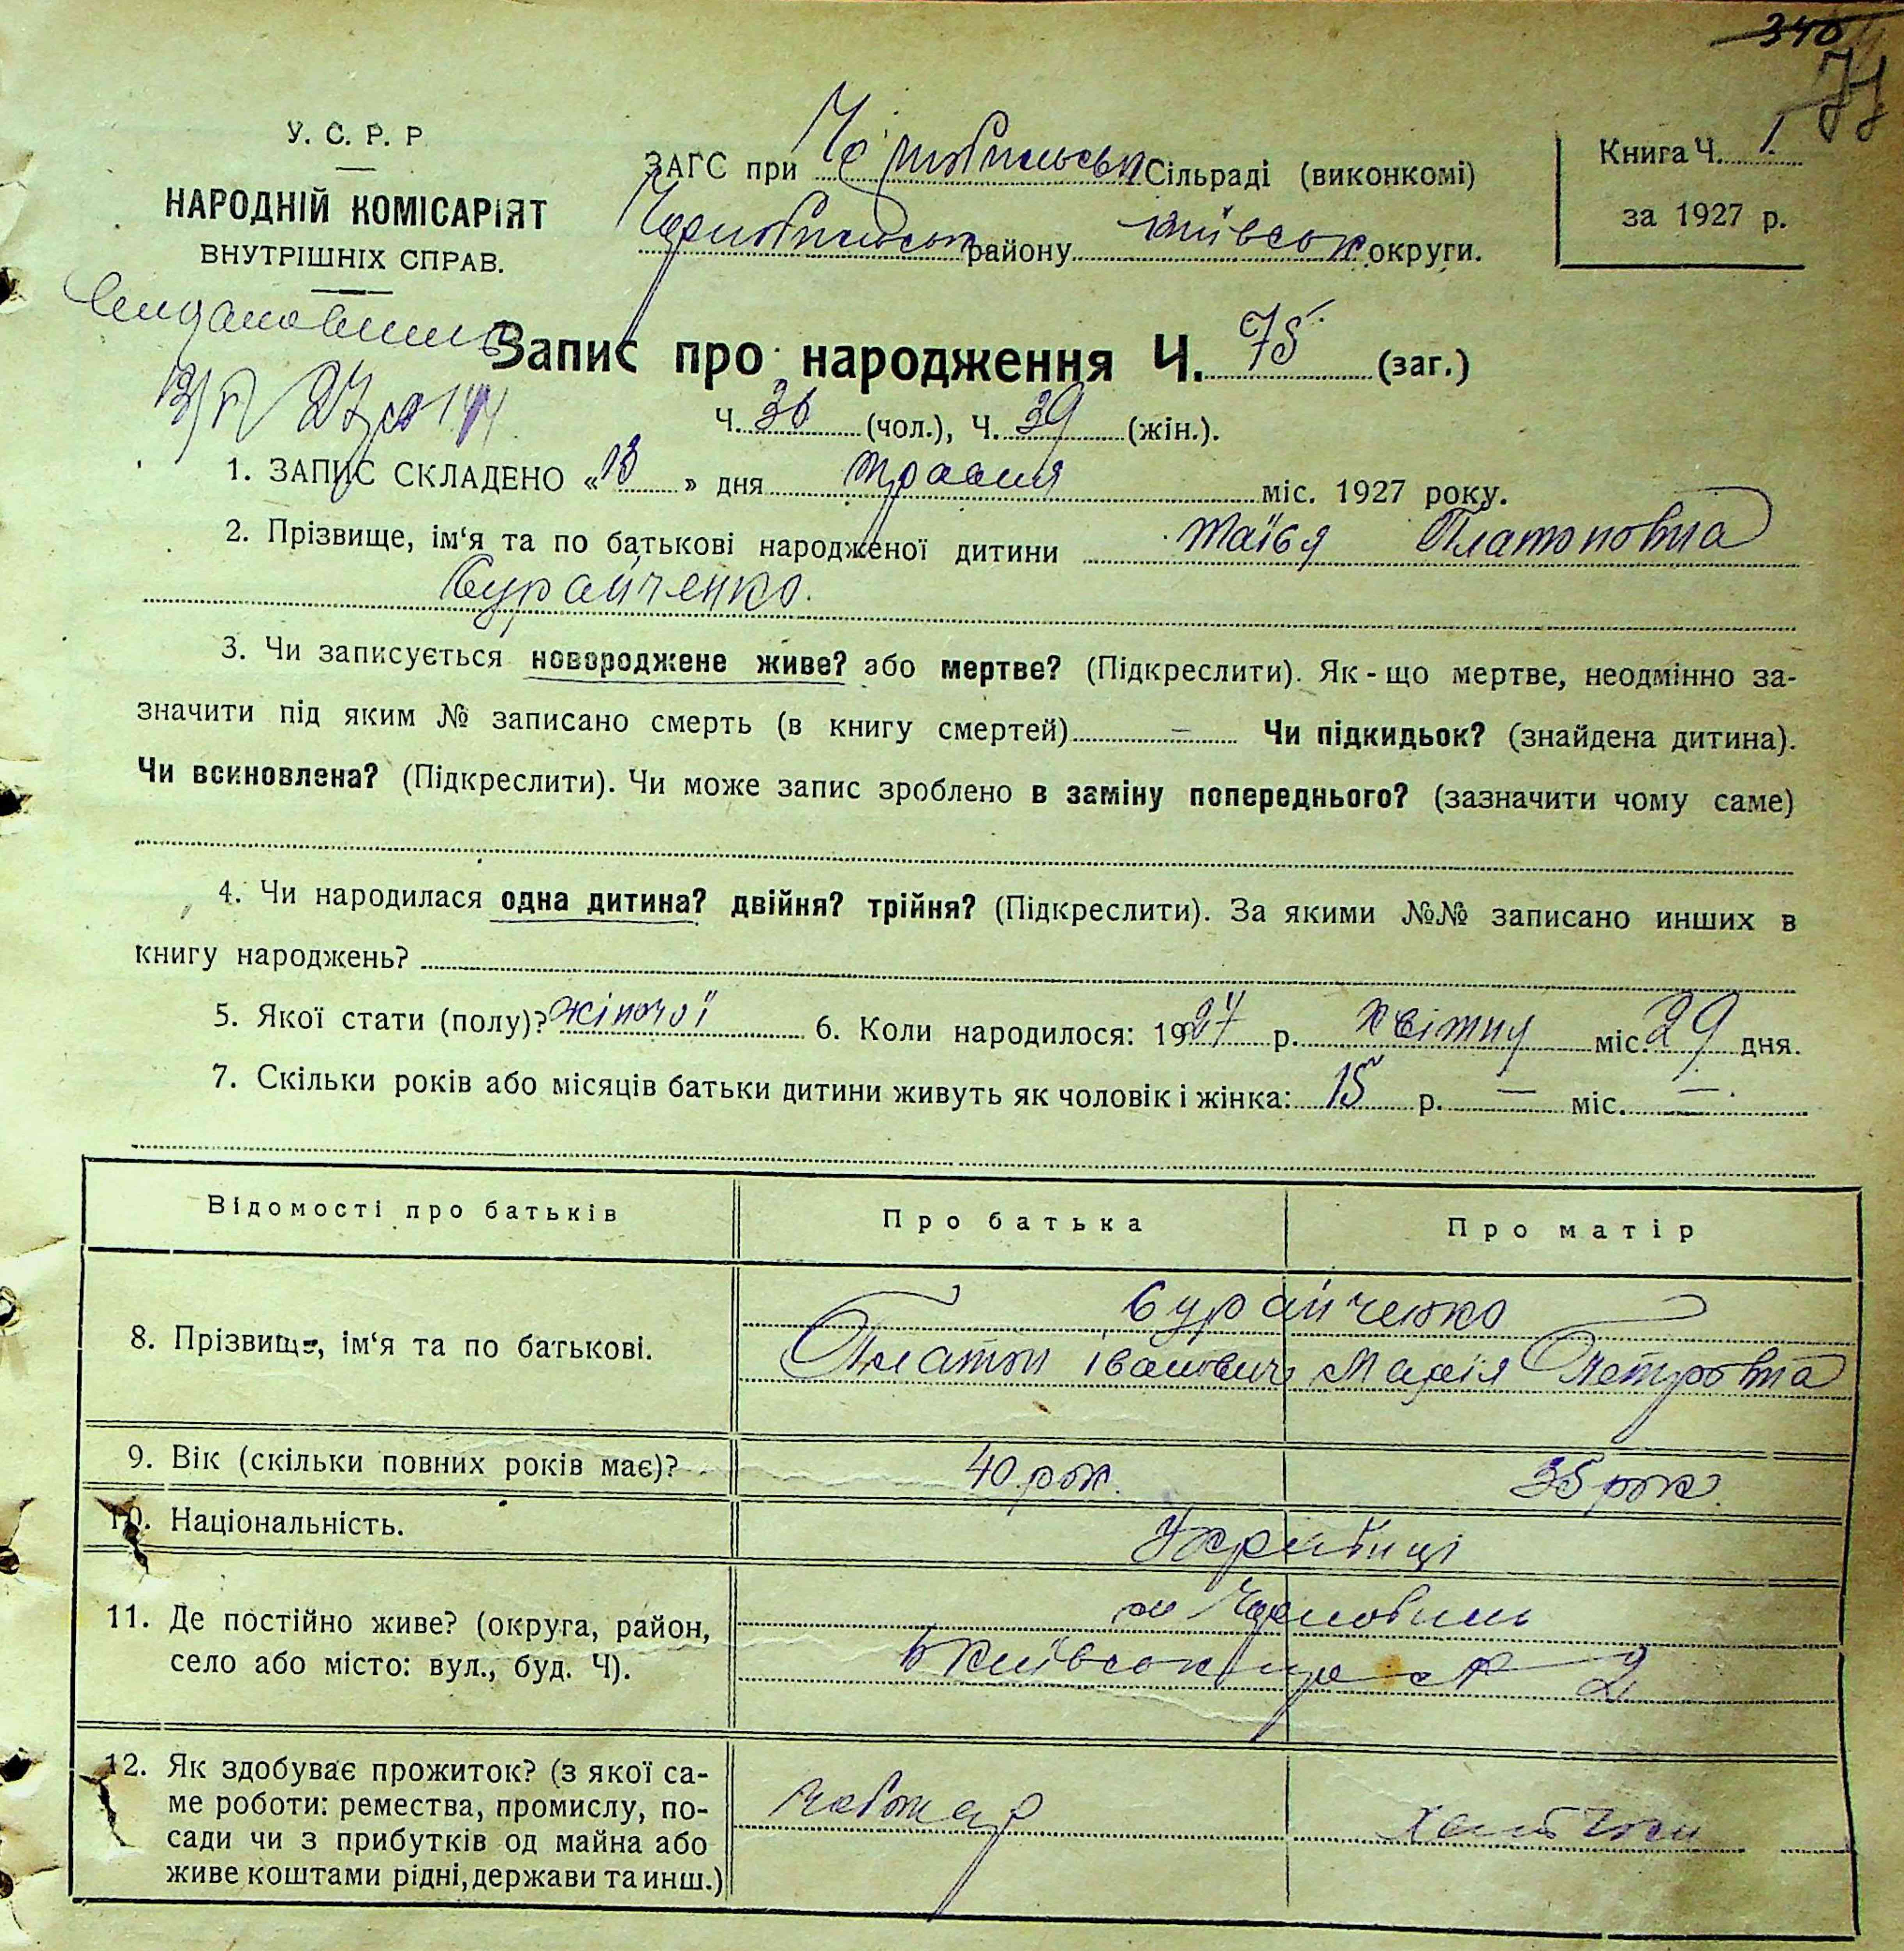 340
У. С. Р. Р
НАРОДНІЙ КОМІСАРІЯТ
ВНУТРІШНІХ СПРАВ.
ЗАГС при Чорнобильськ Сільраді (виконкомі)
Чорнобильськ району Київськ округи.
Книга Ч. 1
за 1927 р.
Запис про народження Ч. 75 (заг.)
Ч. 36 (чол.), Ч. 39 (жін.).
1. ЗАПИС СКЛАДЕНО «13» дня травня міс. 1927 року.
2. Прізвище, ім‘я та по батькові народженої дитини Таїся Платоновна
Бурайченко.
3. Чи записується новороджене живе? або мертве? (Підкреслити). Як - що мертве, неодмінно за-
значити під яким № записано смерть (в книгу смертей) — Чи підкидьок? (знайдена дитина).
Чи всиновлена? (Підкреслити). Чи може запис зроблено в заміну попереднього? (зазначити чому саме)
4. Чи народилася одна дитина? двійня? трійня? (Підкреслити). За якими №№ записано инших в
книгу народжень?
5. Якої стати (полу)? жіночої 6. Коли народилося: 1927 р. квітня міс. 29 дня.
7. Скільки років або місяців батьки дитини живуть як чоловік і жінка: 15 р. — міс. —
Відомості про батьків Про батька Про матір
Бурайченко
8. Прізвище, ім‘я та по батькові. Платон Іванович Марія Петровна
9. Вік (скільки повних років має)? 40 рок. 35 рок.
10. Національність. Українці
11. Де постійно живе? (округа, район,
село або місто: вул., буд. Ч).
м Чорнобиль
Київськ 2
12. Як здобуває прожиток? (з якої са-
ме роботи: ремества, промислу, по-
сади чи з прибутків од майна або
живе коштами рідні, держави та инш.)